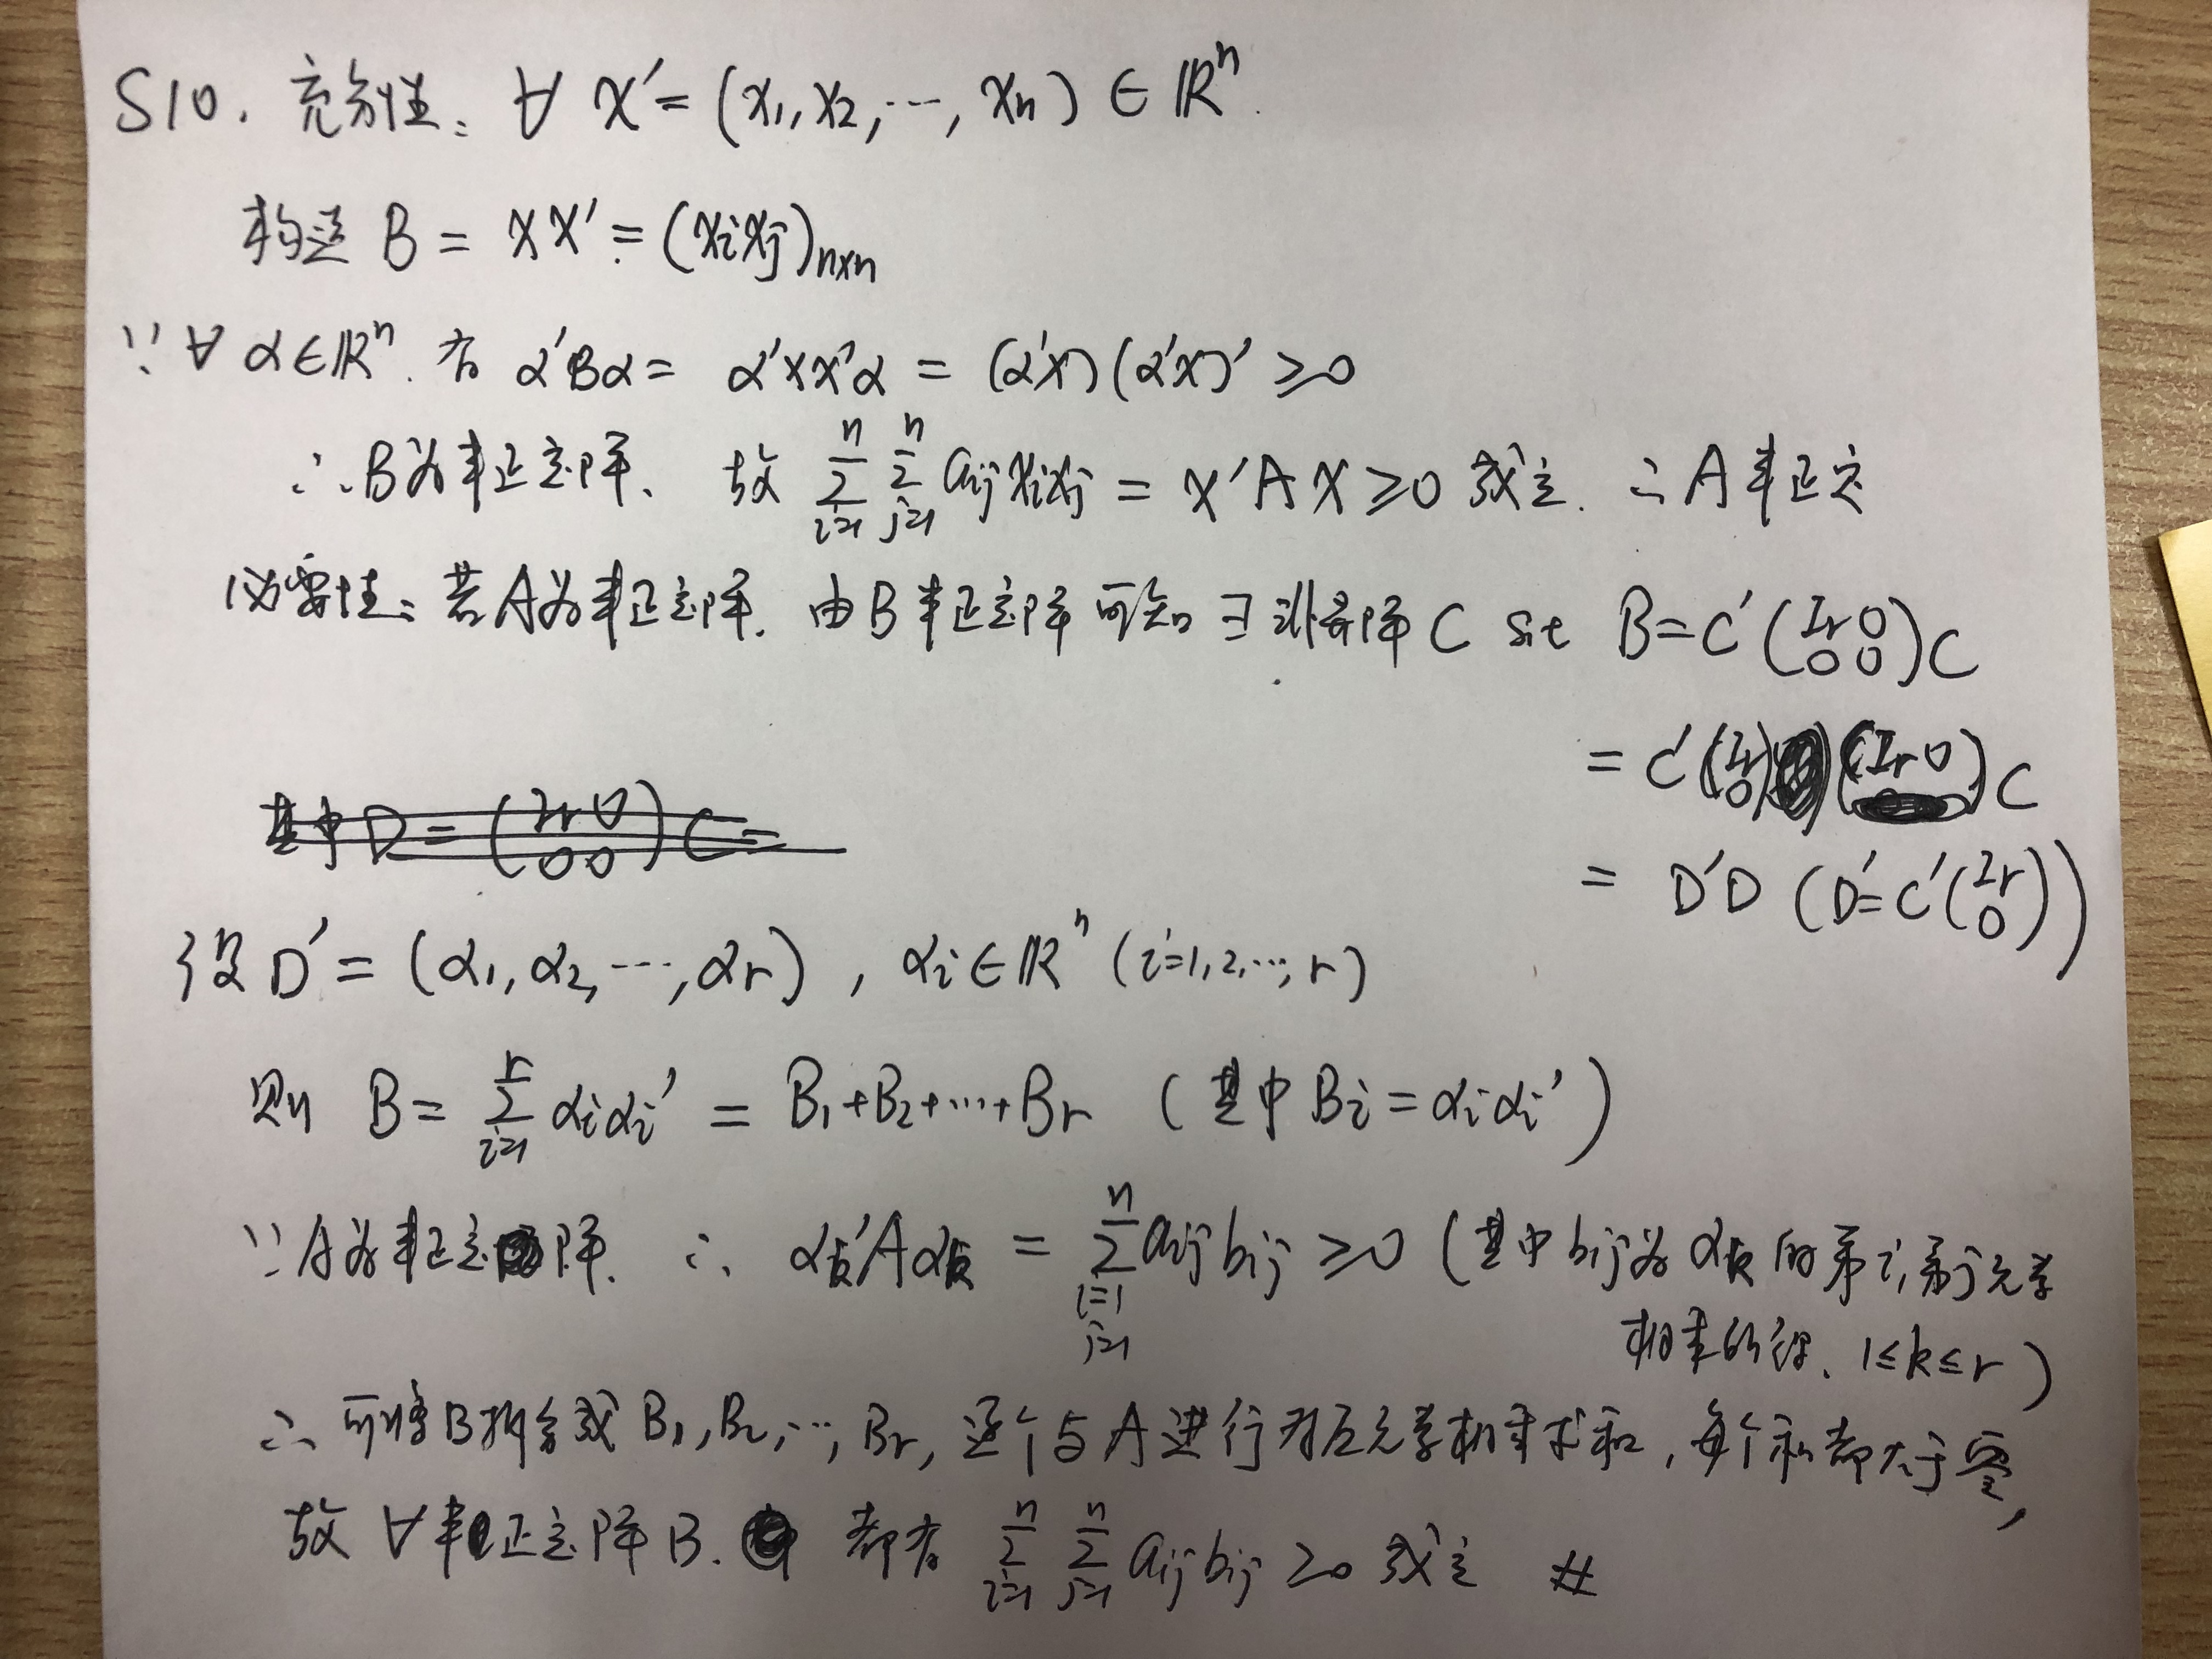 S10. 充分性: ∀ X′ = (x₁, x₂, ⋯, xₙ) ∈ ℝⁿ.
构造 B = XX′ = (xᵢxⱼ)ₙₓₙ
∵ ∀ α∈ℝⁿ. 有 α′Bα = α′XX′α = (α′X)(α′X)′ ≥0
∴ B为半正定阵. 故 ∑ᵢ₌₁ⁿ ∑ⱼ₌₁ⁿ aᵢⱼxᵢxⱼ = X′AX ≥0 成立. ∴ A半正定
必要性: 若A为半正定阵. 由B半正定阵可知 ∃ 非异阵 C s.t B=C′(Ir 0 0 0)C
= C′(Ir 0)(Ir 0)C
其中D = (Ir 0 0 0)C =
= D′D (D′=C′(Ir 0))
设 D′ = (α₁, α₂, ⋯, αr) , αᵢ∈ℝⁿ (i=1,2,⋯, r)
则 B = ∑ᵢ₌₁ʳ αᵢαᵢ′ = B₁+B₂+⋯+Br (其中 Bᵢ = αᵢαᵢ′)
∵ A为半正定阵. ∴ αₖ′Aαₖ = ∑ⁿ i=1 j=1 aᵢⱼbᵢⱼ ≥0 (其中bᵢⱼ为αₖ的第i,第j元素
相乘的得. 1≤k≤r)
∴ 可将B拆分成 B₁, B₂, ⋯, Br, 逐个与A进行对应元素相乘求和, 每个和都大于零,
故 ∀半正定阵B. 都有 ∑ᵢ₌₁ⁿ ∑ⱼ₌₁ⁿ aᵢⱼbᵢⱼ ≥0 成立 #